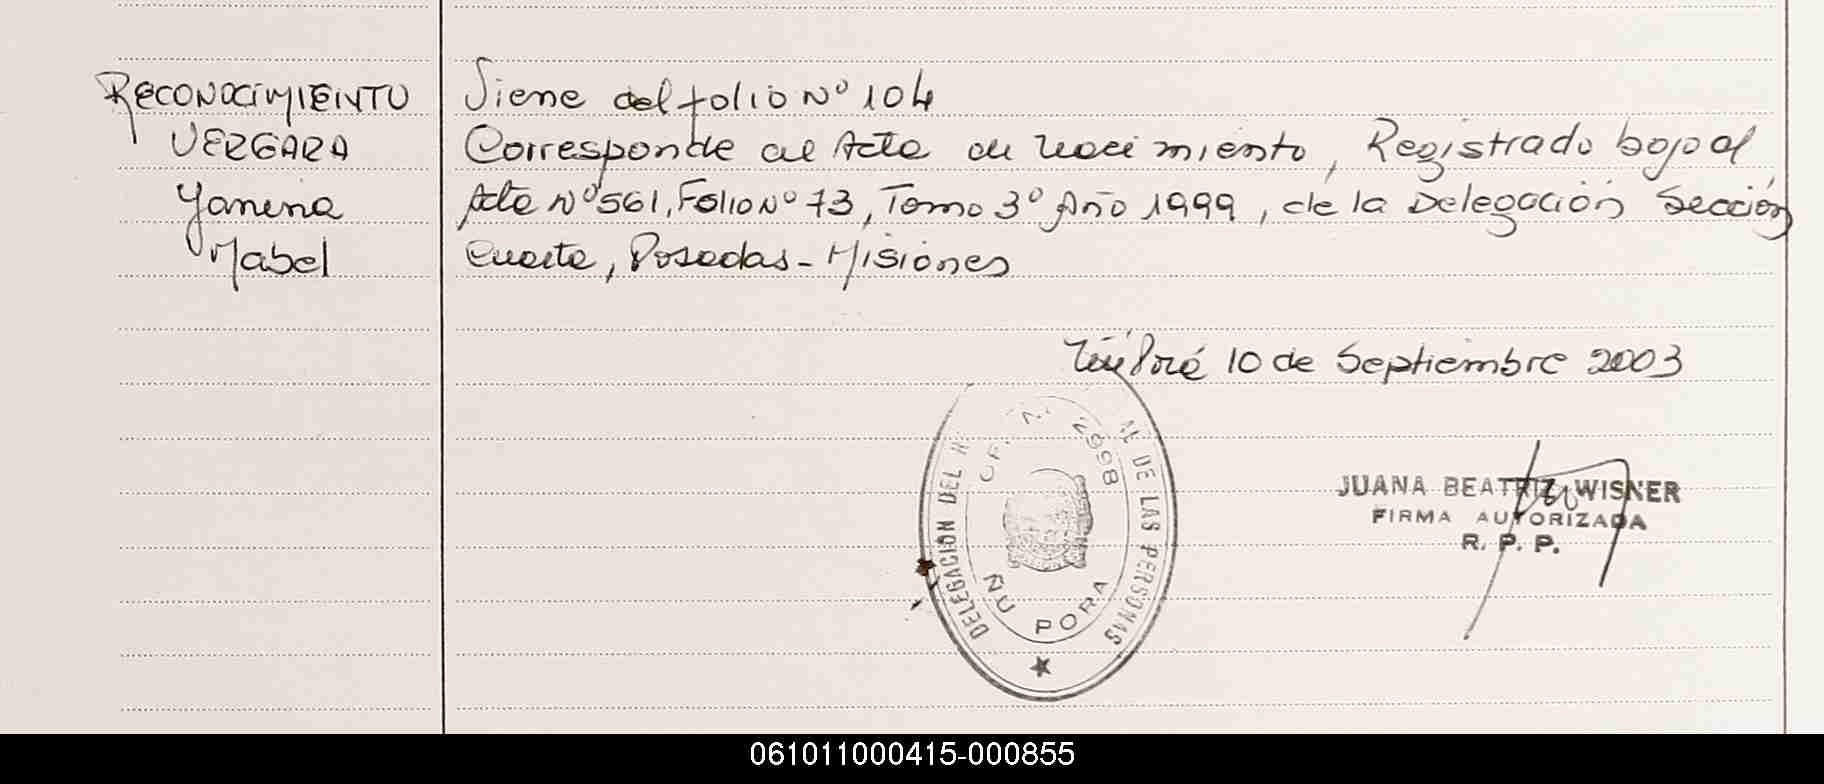 RECONOCIMIENTO
VERGARA
Yanina
Mabel
Viene del folio Nº 104
Corresponde al Acta de Nacimiento, Registrado bajo al
Acta Nº 561, Folio Nº 73, Tomo 3º Año 1999, de la Delegación Sección
Cuarta, Posadas - Misiones
10 de Septiembre 2003
DELEGACION DEL DE LAS PERSONAS
OF. N. 2998
ÑU PORA
JUANA BEATRIZ WISNER
FIRMA AUTORIZADA
R. P. P.
061011000415-000855